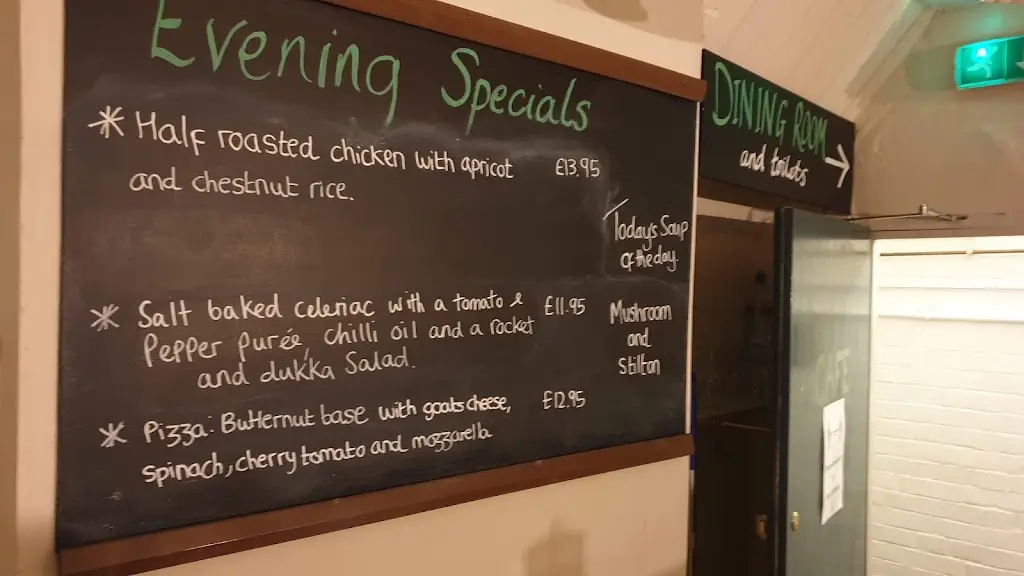 Evening Specials
* Half roasted chicken with apricot £13.95
and chestnut rice.
Today's Soup
of the day.
* Salt baked celeriac with a tomato & £11.95
Pepper purée chilli oil and a rocket
and dukka Salad.
Mushroom
and
Stilton
* Pizza: Butternut base with goats cheese, £12.95
spinach, cherry tomato and mozzarella
DINING ROOM
and toilets
CAFE